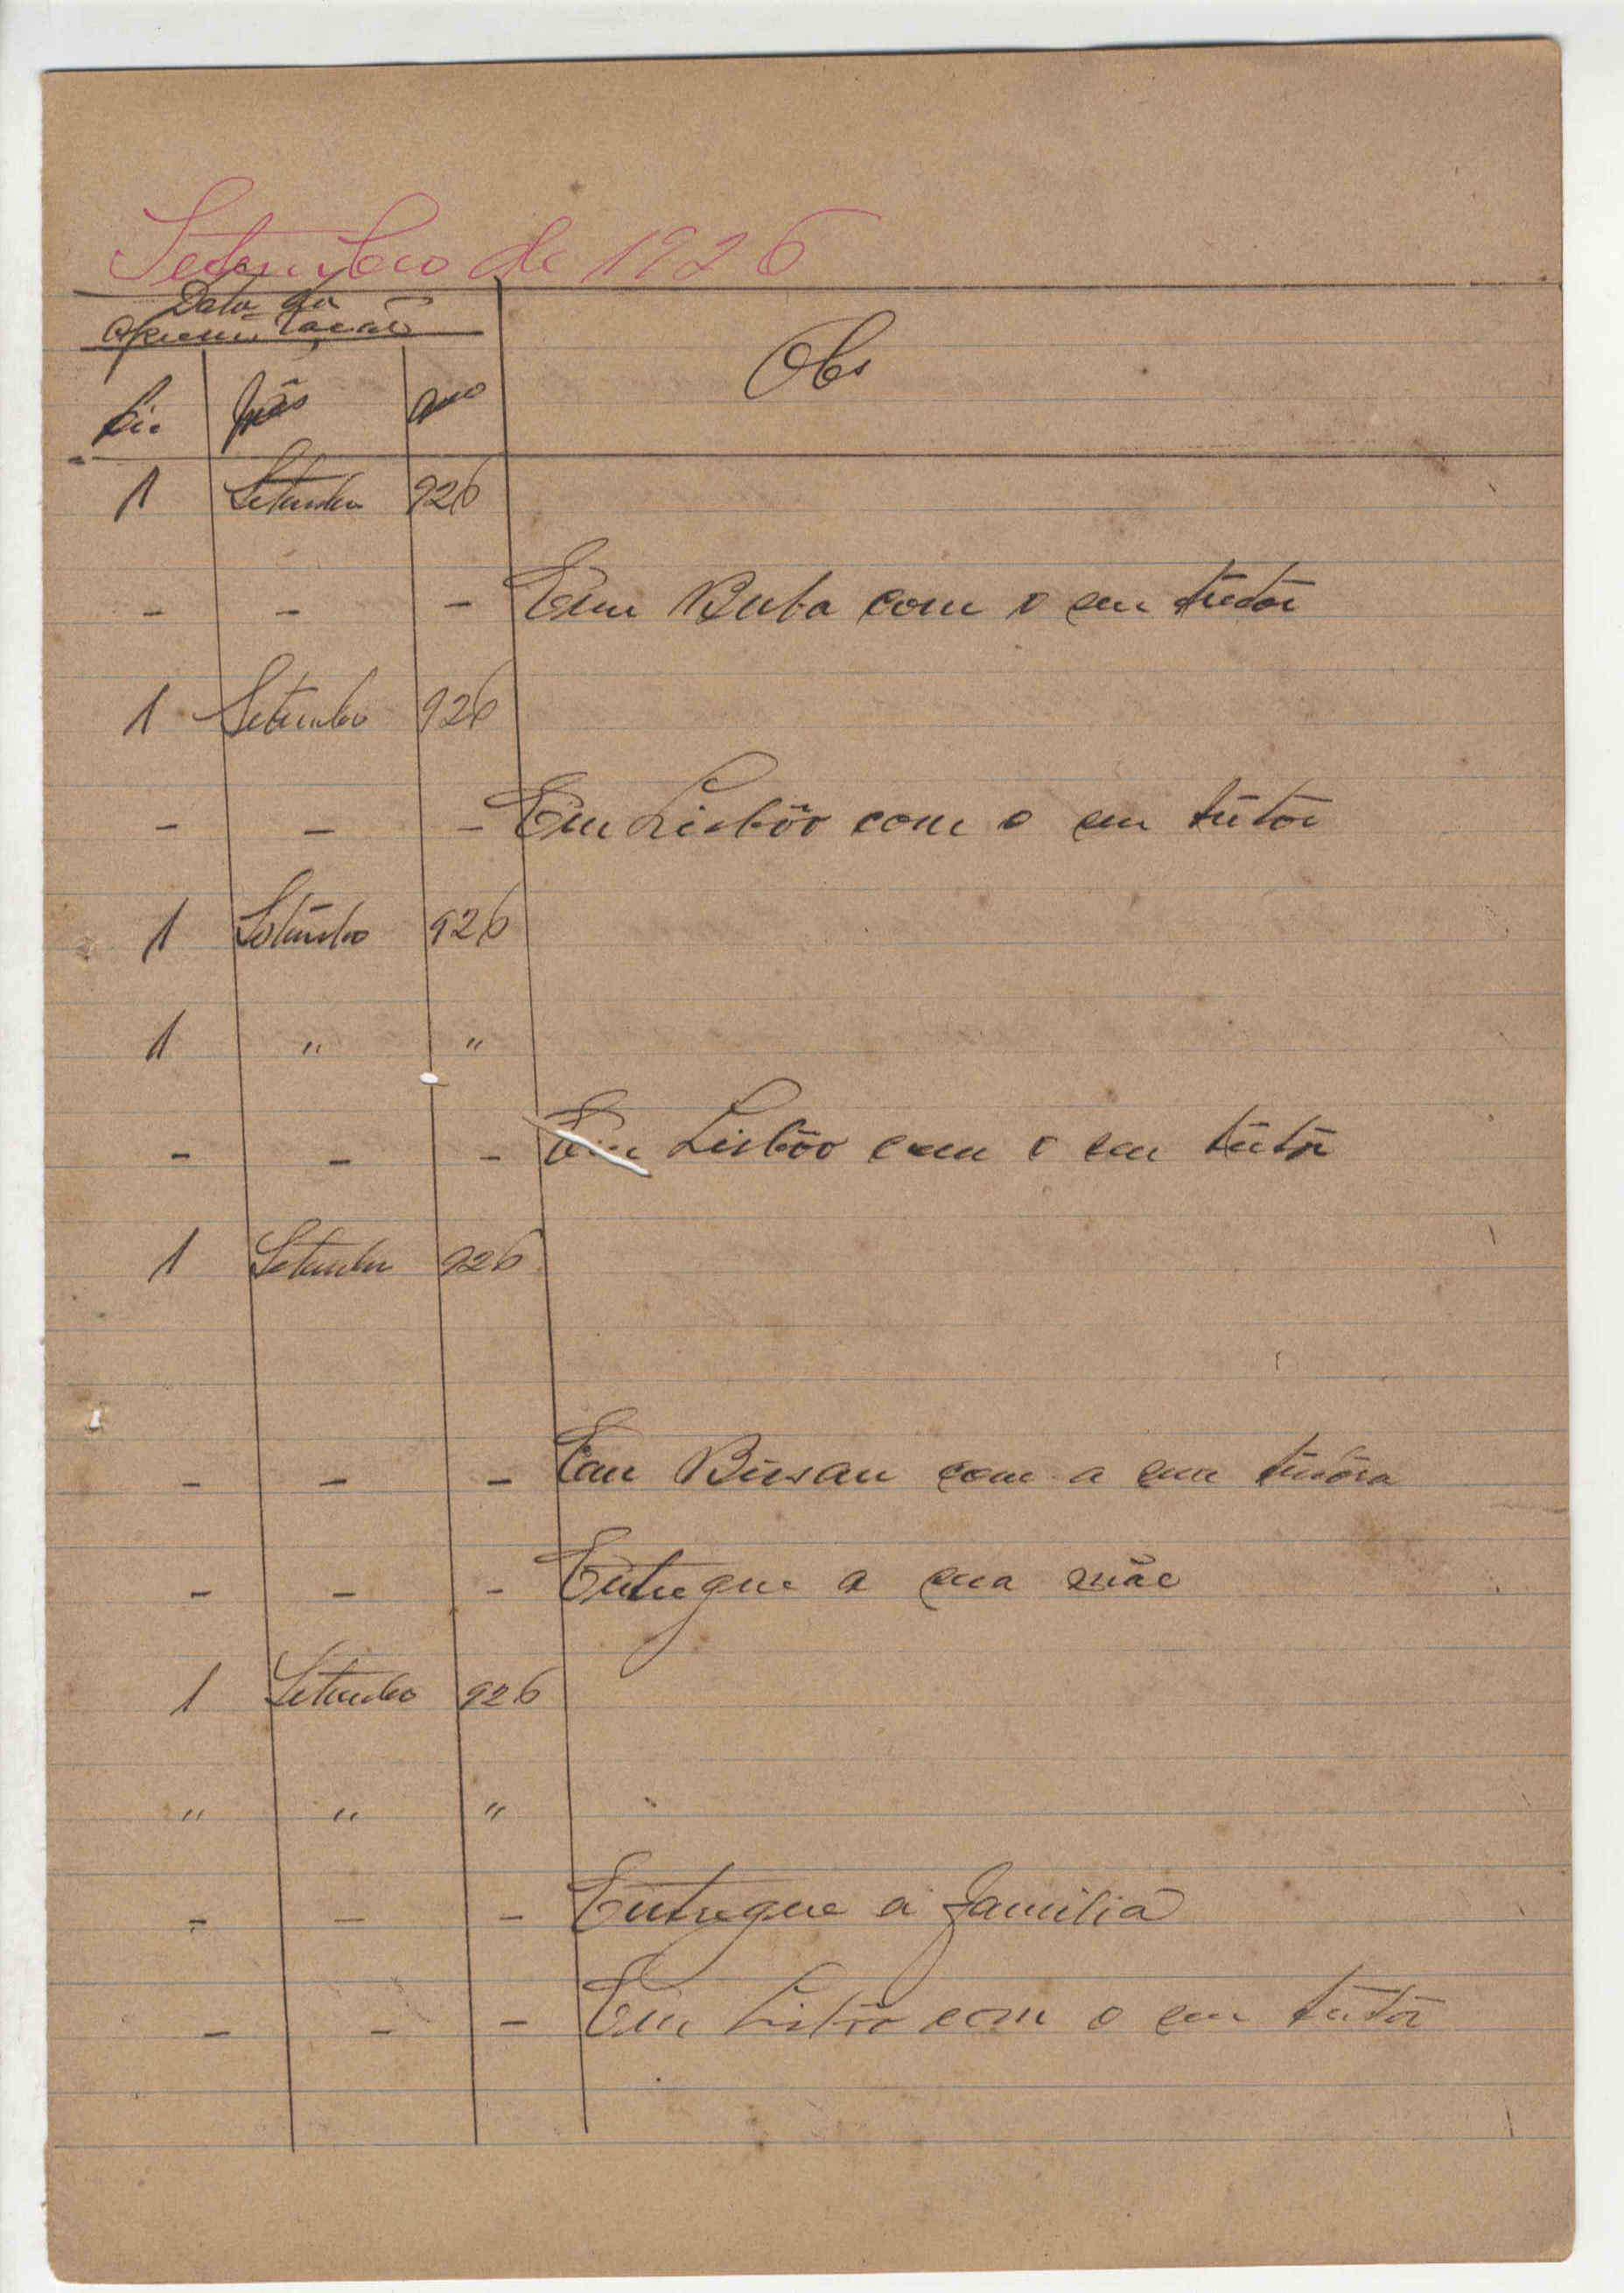 Setembro de 1926
Data da
Apresentação
Dia Mês ano Obs
1 Setembro 926
- - - Em Buba com o seu tutôr
1 Setembro 926
- - - Em Lisbôa com o seu tutôr
1 Setembro 926
1 " "
- - - Em Lisbôa com o seu tutôr
1 Setembro 926
- - - Em Bissau com a sua tutôra
- - - Entregue a sua mãe
1 Setembro 926
" " "
- - - Entregue a familia
- - - Em Lisbôa com o seu tutôr